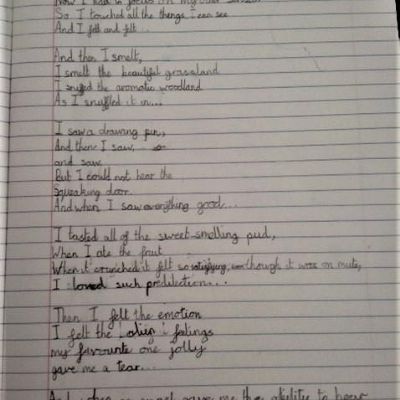 Now I had to focus on my other senses
So, I touched all the things I can see
And I felt and felt..
And then I smelt,
I smelt the beautiful grassland
I sniffed the aromatic woodland
As I snuffled it in...
I saw a drawing pin,
And then I saw,
and saw
But I could not hear the
Squeaking door.
And when I saw everything good...
I tasted all of the sweet-smelling pud,
When I ate the fruit
When it crunched it felt so satisfying, even though it was on mute,
I loved such predilection...
Then I felt the emotion
I felt the feelings
my favourite one jolly
gave me a tear...
gave me the ability to hear